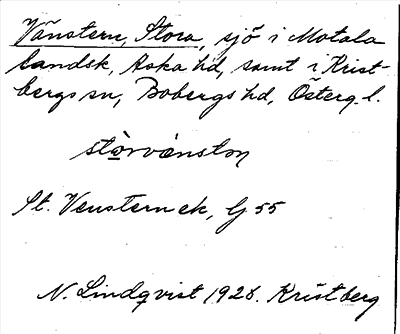 Vänstern, Stora, sjö i Motala
landsk, Aska hd, samt i Krist-
bergs sn, Bobergs hd, Österg. l.
stòrvènston
St. Venstern ek, G 55
N. Lindqvist 1928. Kristberg